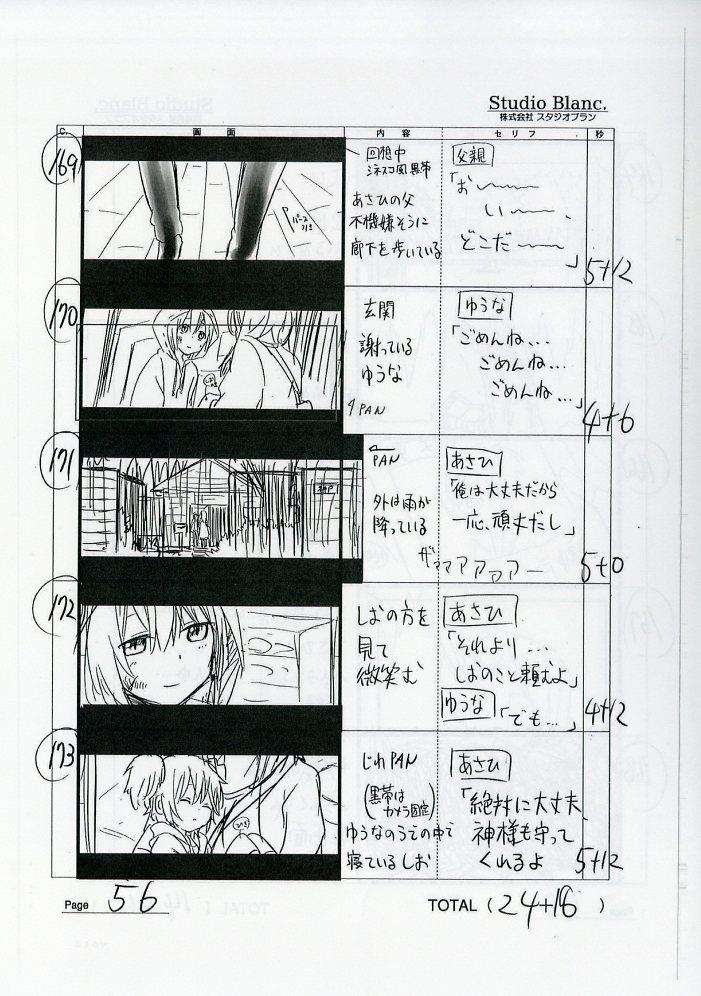 Studio Blanc.
株式会社 スタジオブラン
C. 画面 内容 セリフ 秒
169
パース
回想中
シネスコ風黒帯
あさひの父
不機嫌そうに
廊下を歩いている
父親
「お〜
い〜、
どこだ〜
」
5+12
170
玄関
謝っている
ゆうな
PAN
ゆうな
「ごめんね...
ごめんね...
ごめんね...」
4+6
171
PAN
外は雨が
降っている
あさひ
「俺は大丈夫だから
一応、頑丈だし」
ザァァァァァァー
5+0
172
しおの方を
見て
微笑む
あさひ
「それより...
しおのこと頼むよ」
ゆうな 「でも...」
4+12
173
じわPAN
(黒帯は
カメラ固定)
ゆうなのうでの中で
寝ているしお
あさひ
「絶対に大丈夫、
神様も守って
くれるよ
5+12
Page 56
TOTAL ( 24+18 )